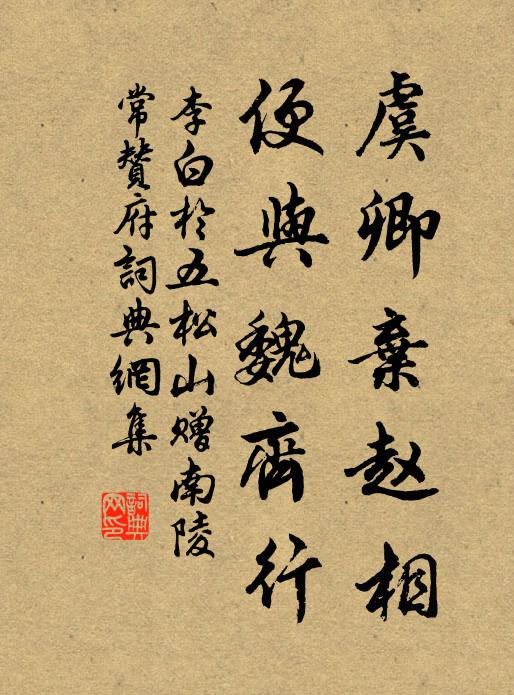 虞卿棄趙相
便與魏齊行
李白於五松山贈南陵
常贊府詞典網集
詞典網印